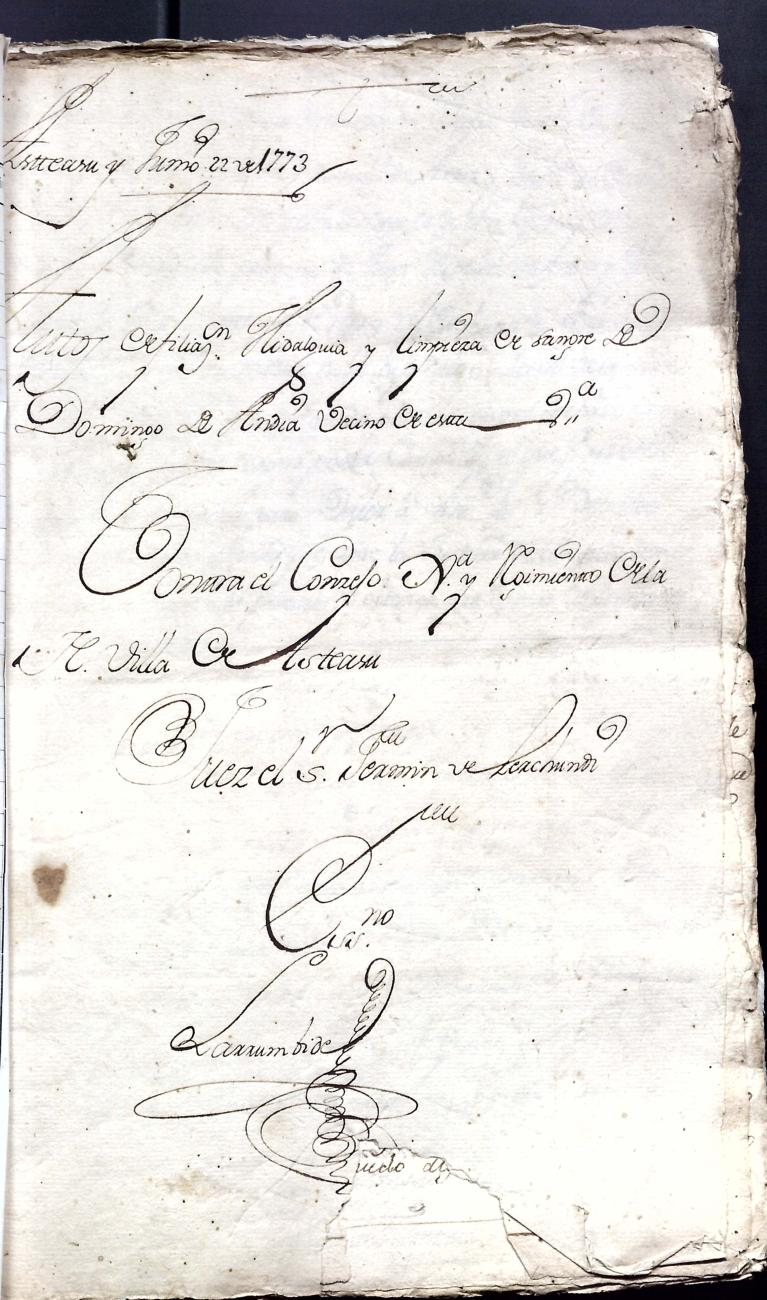 Asteasu y Junio 22 de 1773
Autos de filiaz.on Hidalguia y limpieza de sangre de
Domingo de Andia Vecino de esta V.a
Contra el Conzejo N.a y Rejimiento de la
N. Villa de Asteasu
Juez el S.r Fermin de Lerchundi
Ess.no
Larrumbide